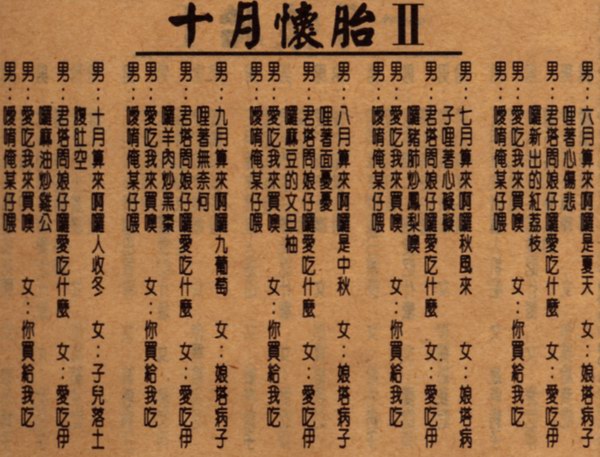 十月懷胎Ⅱ
男：六月算來啊囉是夏天　女：娘塔病子
哩著心傷悲
男：君塔問娘仔囉愛吃什麼　女：愛吃伊
囉新出的紅荔枝
男：愛吃我來買噢　女：你買給我吃
男：噯唷俺某仔喂
男：七月算來啊囉秋風來　女：娘塔病
子哩著心礙礙
男：君塔問娘仔囉愛吃什麼　女：愛吃伊
囉豬肺炒鳳梨噢
男：愛吃我來買噢　女：你買給我吃
男：噯唷俺某仔喂
男：八月算來啊囉是中秋　女：娘塔病子
哩著面憂憂
男：君塔問娘仔囉愛吃什麼　女：愛吃伊
囉麻豆的文旦柚
男：愛吃我來買噢　女：你買給我吃
男：噯唷俺某仔喂
男：九月算來啊囉九葡萄　女：娘塔病子
哩著無奈何
男：君塔問娘仔囉愛吃什麼　女：愛吃伊
囉羊肉炒黑棗
男：愛吃我來買噢　女：你買給我吃
男：噯唷俺某仔喂
男：十月算來啊囉人收冬　女：子兒落土
腹肚空
男：君塔問娘仔囉愛吃什麼　女：愛吃伊
囉麻油炒雞公
男：愛吃我來買噢　女：你買給我吃
男：噯唷俺某仔喂